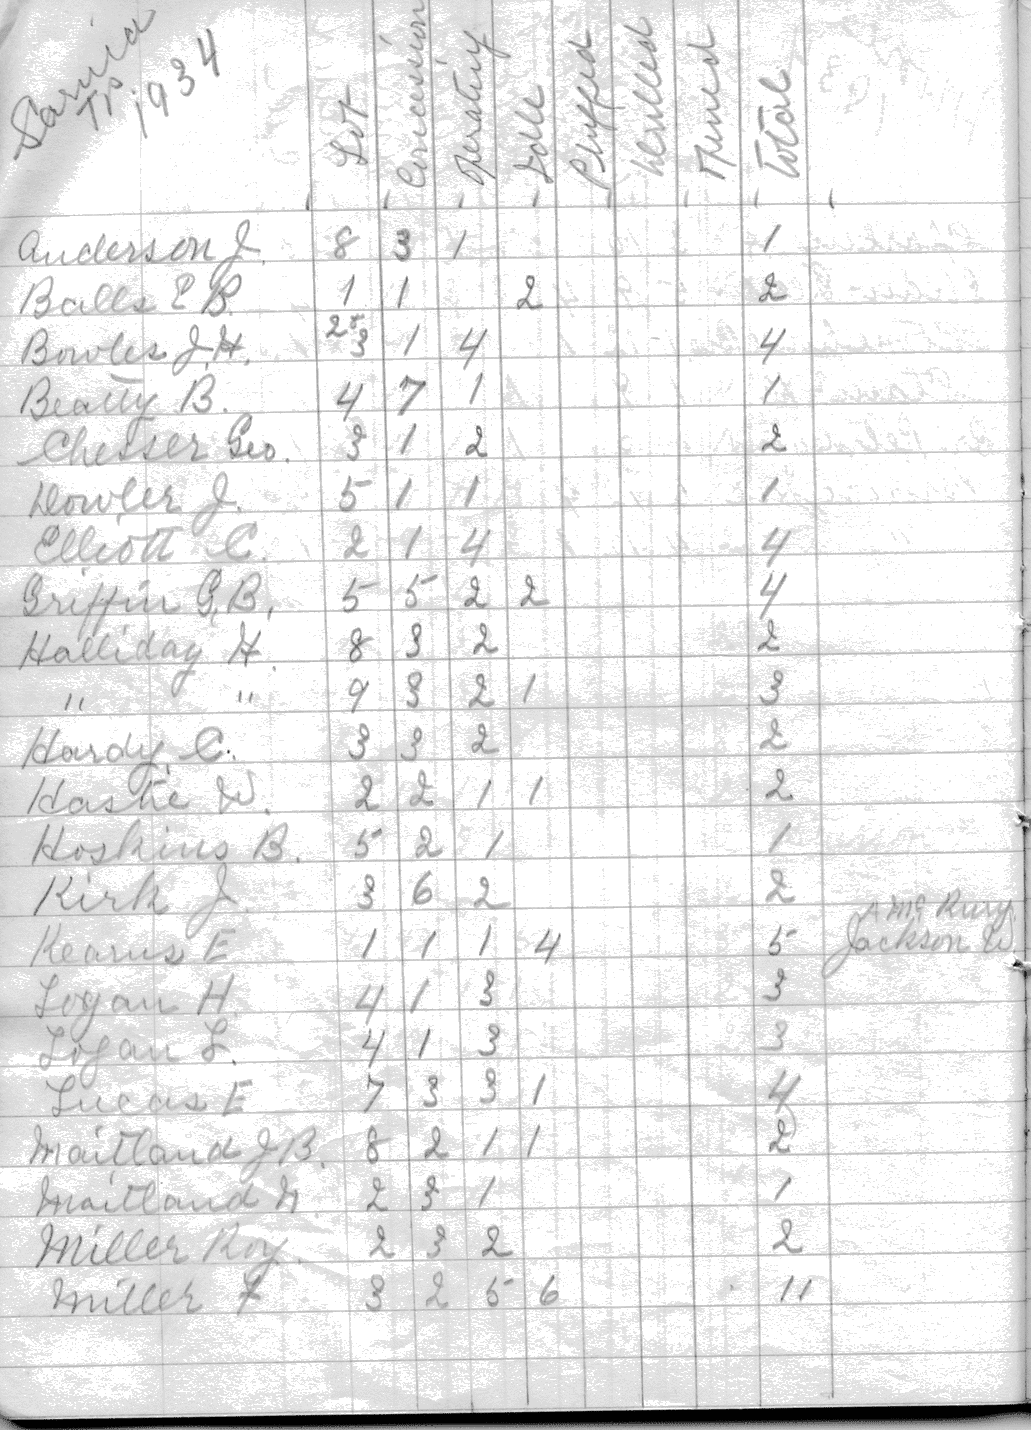 Sarnia
Tp.
1934
Lot Concession Operating Idle Plugged Drilled Total
Anderson J. 8 3 1 1
Balls E B. 1 1 2 2
Bowles J.H. 2 & 3 1 4 4
Beatty B. 4 7 1 1
Chesser Geo. 3 1 2 2
Dowler J. 5 1 1 1
Elliott C. 2 1 4 4
Griffin G.B. 5 5 2 2 4
Halliday H. 8 3 2 2
" " 9 3 2 1 3
Hardy C. 3 3 2 2
Hastie W. 2 2 1 1 2
Hoskins B. 5 2 1 1
Kirk J. 3 6 2 2
A Mc
Kearns E 1 1 1 4 5 Jackson W.
Logan H. 4 1 3 3
Logan L. 4 1 3 3
Lucas E 7 3 3 1 4
Maitland J B. 8 2 1 1 2
Maitland N. 2 3 1 1
Miller Roy. 2 3 2 2
Miller F 3 2 5 6 11